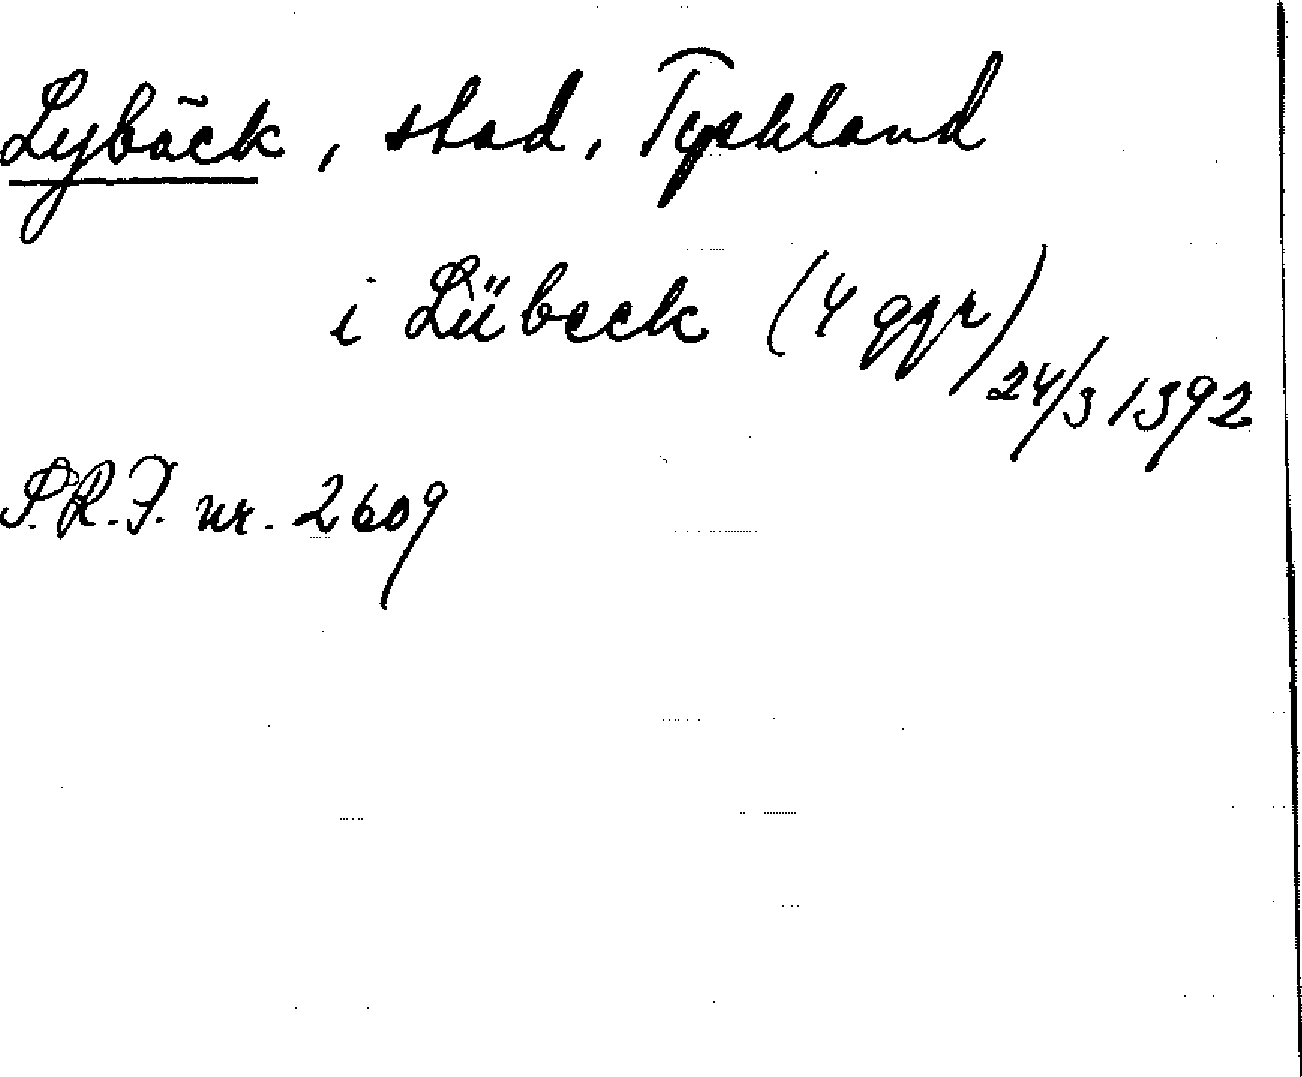 Lybäck, stad, Tyskland
i Lübeck (4 ggr) 24/3 1392
S.R.P. nr. 2609